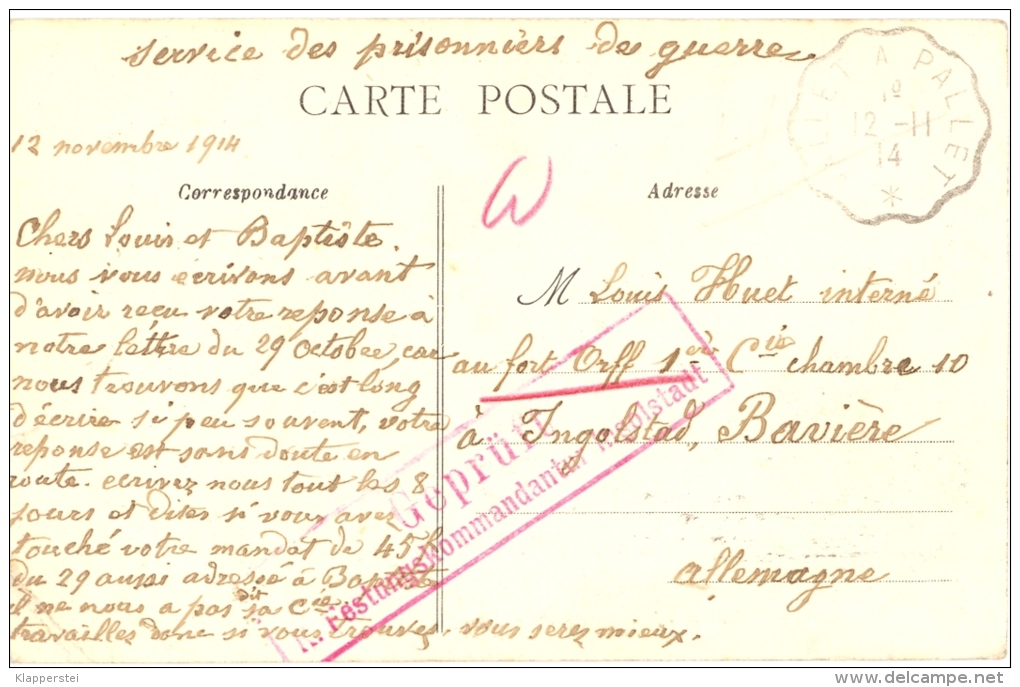 service des prisonniers de guerre
CARTE POSTALE
A PALLET
12 -11
14
*
12 novembre 1914
Correspondance
Chers Louis et Baptiste.
nous vous ecrivons avant
d'avoir reçu votre reponse à
notre lettre du 29 octobre, car
nous trouvons que c'est long
d'écrire si peu souvent, votre
reponse est sans doute en
route. ecrivez nous tout les 8
jours et dites si vous avez
touché votre mandat de 45 f
du 29 aussi adressé à Baptiste
il ne nous a pas dit sa Cie.
travailles donc si vous trouvez, vous serez mieux.
Adresse
W
M Louis Huet interné
au fort Orff 1ère Cie chambre 10
à Ingolstad, Bavière
allemagne
Geprüft
K. Festungskommandantur Ingolstadt
Klapperstei
www.delcampe.net